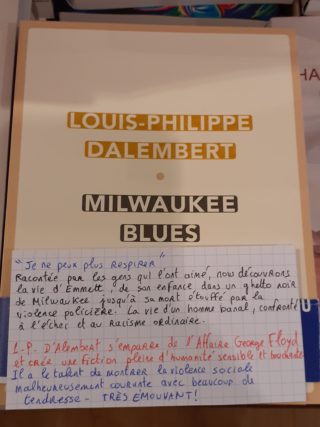 LOUIS-PHILIPPE
DALEMBERT
MILWAUKEE
BLUES
"Je ne peux plus RESPIRER"
Racontée par les gens qui l'ont aimé, nous découvrons
la vie d'Emmett, de son enfance dans un ghetto noir
de Milwaukee jusqu'à sa mort étouffé par la
violence policière. La vie d'un homme banal, confronté
à l'échec et au Racisme ordinaire.
L.-P. D'Alembert s'empare de l'Affaire George Floyd
et crée une fiction pleine d'humanité sensible et
Il a le talent de montrer la violence sociale
malheureusement courante avec beaucoup de
tendresse - TRÈS EMOUVANT!
HA